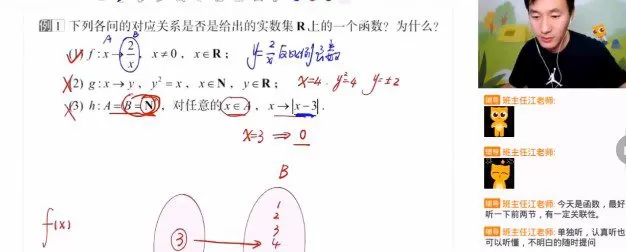 例1 下列各问的对应关系是否是给出的实数集R上的一个函数？为什么？
A B
(1) f:x→2/x, x≠0, x∈R; y=2/x
(2) g:x→y, y²=x, x∈N, y∈R; x=4. y²=4 y=±2
(3) h:A=B=N, 对任意的x∈A, x→|x-3|.
x=3 ⇒ 0
B
f(x)
3
1
2
3
4
辅导 班主任江老师:
辅导 班主任江老师:
辅导 班主任江老师: 今天是函数，最好
听一下前两节，有一定关联性。
辅导 班主任江老师: 单独听，认真听也
可以听懂，不明白的随时提问